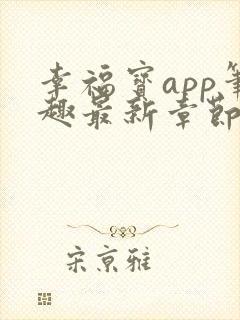 幸福宝app笔
趣最新章节
宋京雅